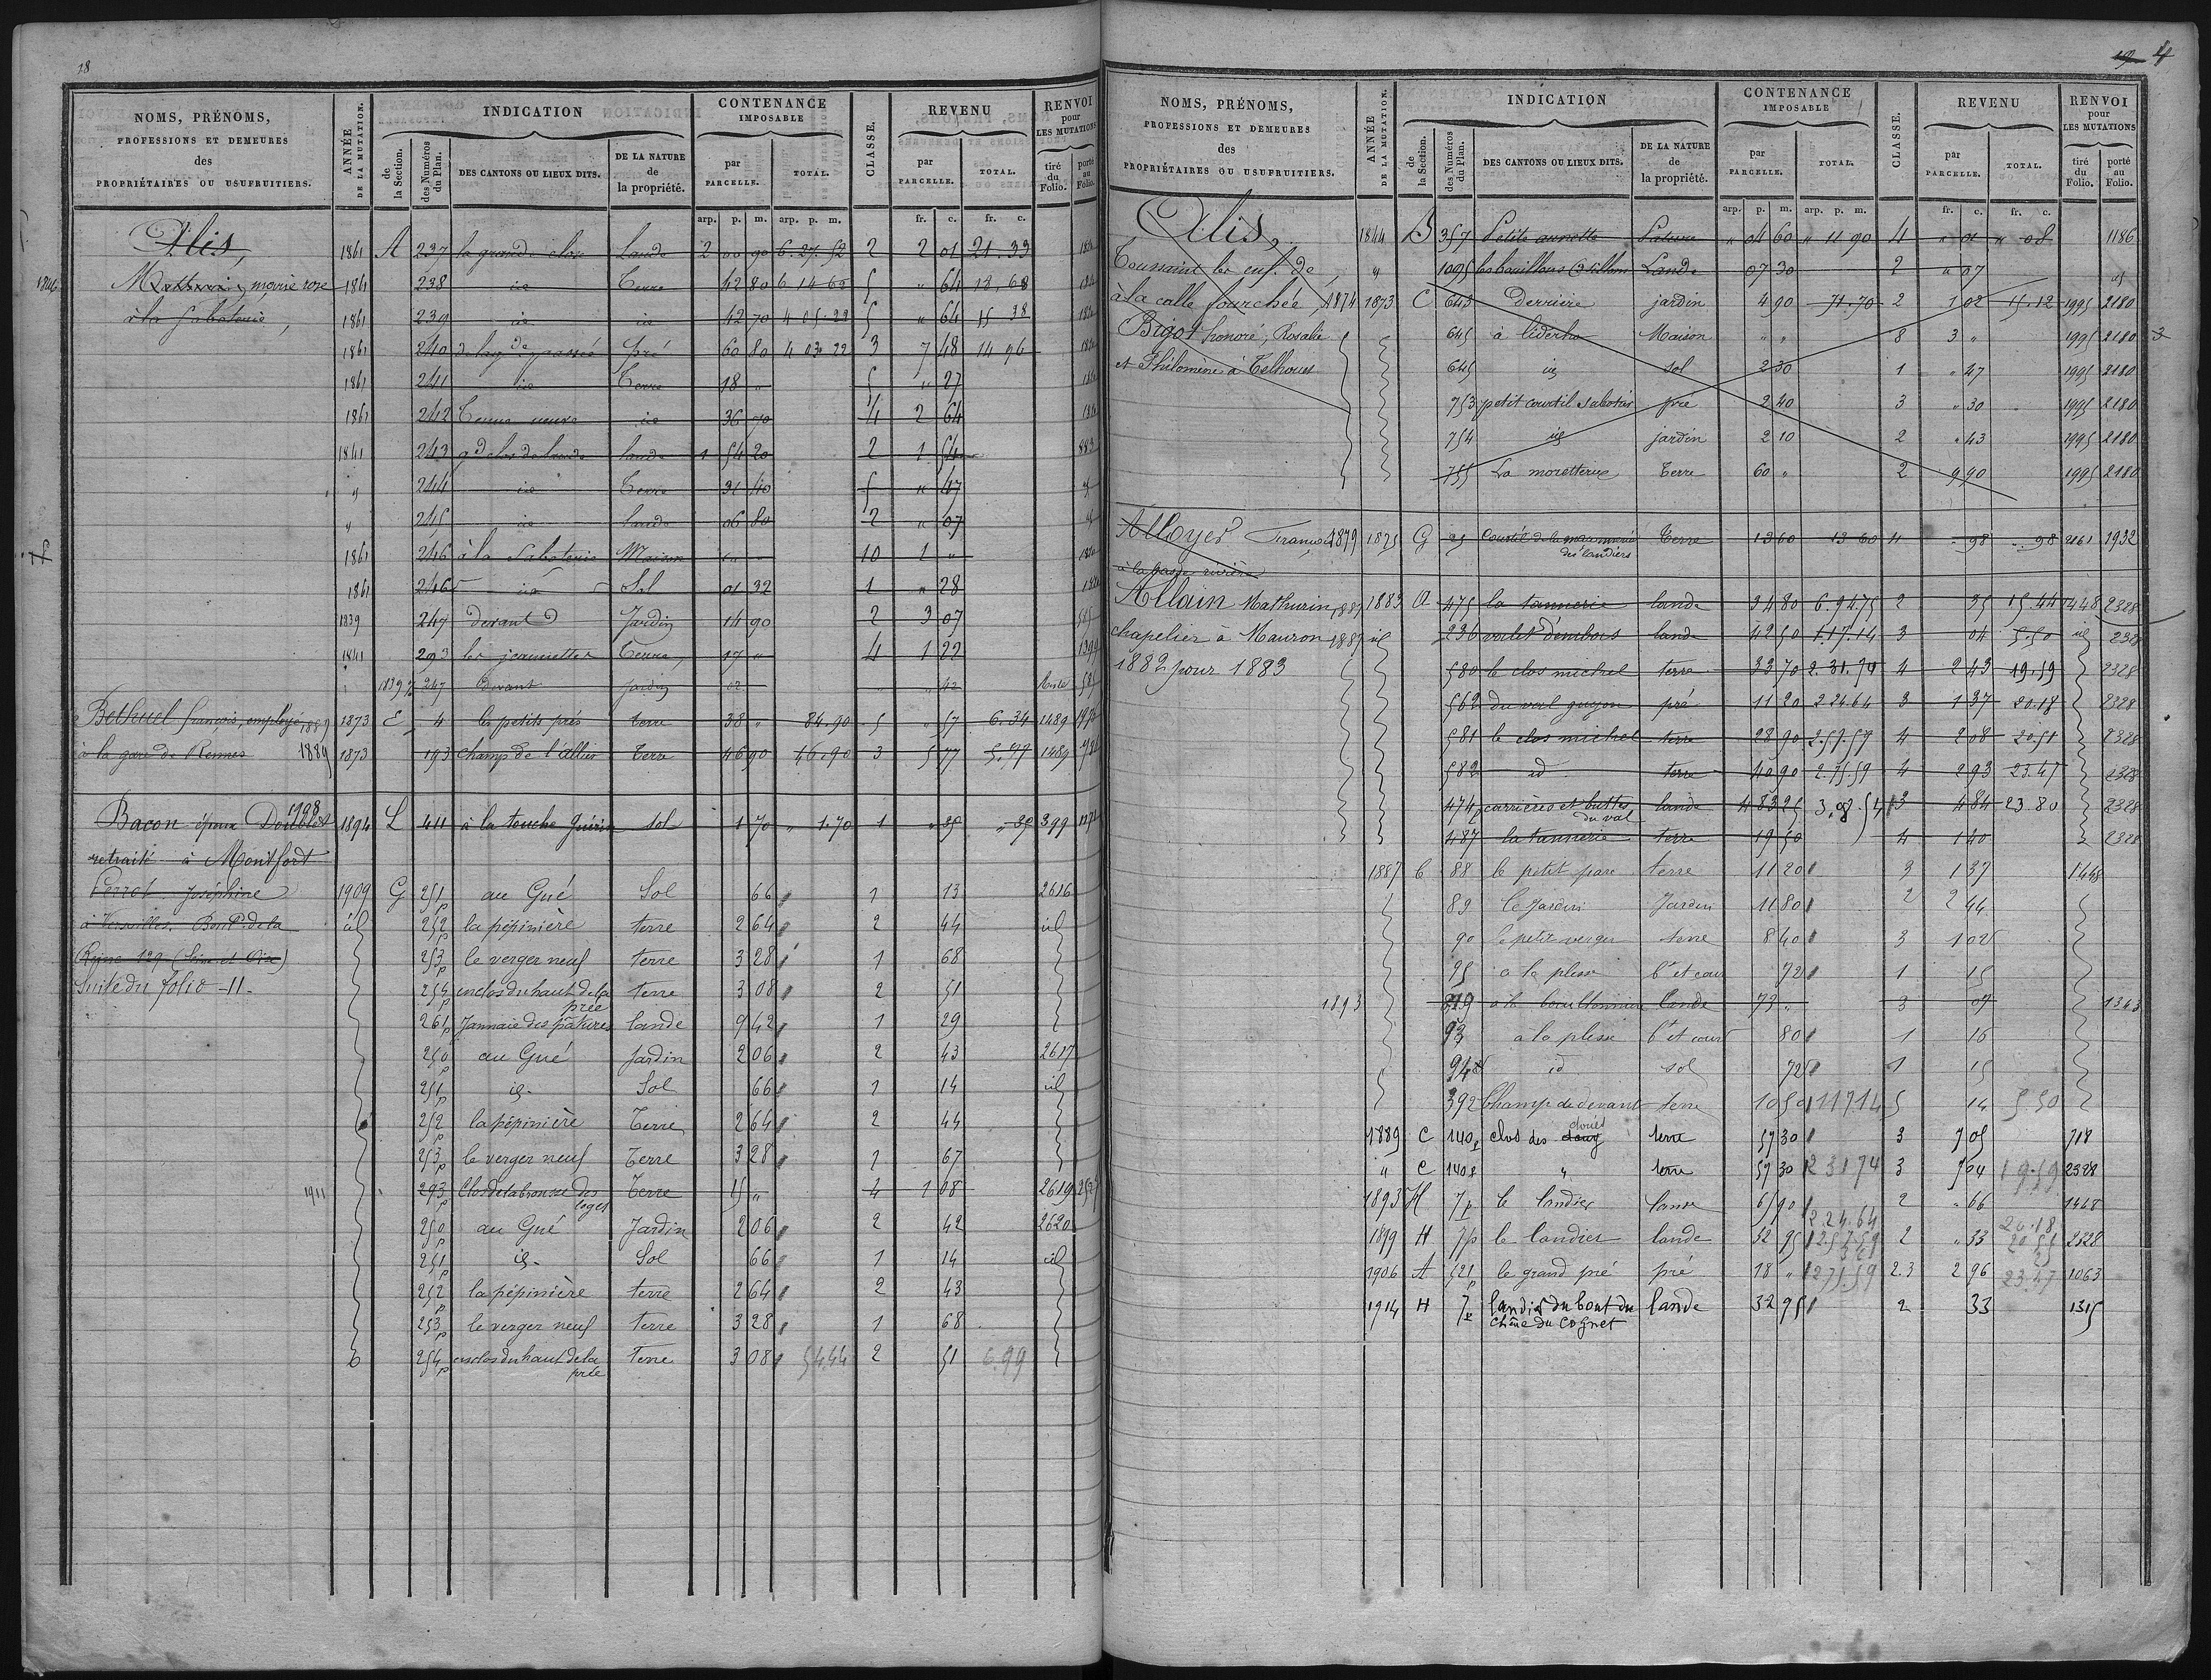 18
NOMS, PRÉNOMS,
PROFESSIONS ET DEMEURES
des
PROPRIÉTAIRES OU USUFRUITIERS.
ANNÉE DE LA MUTATION.
INDICATION
de la Section.
des Numéros du Plan.
DES CANTONS OU LIEUX DITS.
DE LA NATURE de la propriété.
CONTENANCE IMPOSABLE
par PARCELLE.
TOTAL.
CLASSE.
REVENU
par PARCELLE.
TOTAL.
RENVOI pour LES MUTATIONS
tiré du Folio.
porté au Folio.
arp. p. m. arp. p. m. fr. c. fr. c.
Alis, 1861 A 237 la grande close Lande 2 00 90 6.27.52 2 2 01 21.33
1846 marie rose 1861 238 id Terre 42 80 6 14 62 5 " 64 18.68
à la Saboterie, 1861 239 id id 42 70 4 05 22 5 " 64 15 38
1861 240 pré 60 80 4 03 22 3 7 48 14 96
1861 241 id Terre 18 " 5 " 27
1861 242 Tenue neuve id 36 90 4 2 64
1841 243 gd clos de lande lande 1 54 20 2 1 54 883
" 244 id Terre 31 40 5 " 47 "
" 245 id lande 06 80 2 " 07 "
1861 246 à la Saboterie Maison " " 10 1 "
1861 246 id Sol 01 32 1 " 28
1839 247 devant Jardin 14 90 2 3 07
1841 293 les jeannettes Terre 17 " 4 1 22 1399
1839 247 devant jardin 02 " " 42
Bethuel françois, employé 1889 1873 E 4 les petits prés terre 38 " 84.90 5 " 57 6.34 1489
à la gare de Rennes 1889 1873 193 champ de l'allier terre 46 90 46.90 3 5 77 5.77 1489
Bacon époux Doublet 1908 1894 L 411 à la touche Guérin sol 1 70 " 1.70 1 " 35 " 35 399
retraité à Montfort
Perrot Joséphine 1909 G 251p au Gué Sol 66 1 13 2616
à Versailles, Boul.d de la id 252p la pépinière terre 2 64 2 44 id
Reine 129 (Seine et Oise) 253p le verger neuf terre 3 28 1 68
Suite du folio 11. 254p enclos du haut de la prée terre 3 08 2 51
261p Jannaie des pâtures lande 9 42 1 29
250p au Gué Jardin 2 06 2 43 2617
251p id. Sol 66 1 14 id
252p la pépinière Terre 2 64 2 44
253p le verger neuf Terre 3 28 1 67
1911 293p Clos de la brousse des loges Terre 15 " 4 1 08 2619
250p au Gué Jardin 2 06 2 42 2620
251p id. Sol 66 1 14 id
252p la pépinière terre 2 64 2 43
253p le verger neuf terre 3 28 1 68
254p enclos du haut de la prée Terre 3 08 54.44 2 51 6.99
19 4
NOMS, PRÉNOMS,
PROFESSIONS ET DEMEURES
des
PROPRIÉTAIRES OU USUFRUITIERS.
ANNÉE DE LA MUTATION.
INDICATION
de la Section.
des Numéros du Plan.
DES CANTONS OU LIEUX DITS.
DE LA NATURE de la propriété.
CONTENANCE IMPOSABLE
par PARCELLE.
TOTAL.
CLASSE.
REVENU
par PARCELLE.
TOTAL.
RENVOI pour LES MUTATIONS
tiré du Folio.
porté au Folio.
arp. p. m. arp. p. m. fr. c. fr. c.
Alis, 1844 B 357 Petite Pature " 04 60 " 11 90 4 " 01 " 08 1186
Toussaint les enf. de " 1095 Lande 07 30 2 " 07 "
à la calle fourchée, 1874 1873 C 643 Derrière jardin 4 90 71.70 2 1 02 15.12 1995 2180
Bigot honoré, Rosalie 645 Maison " " 8 3 " 1995 2180
et Philomène à Telhouet 645 id sol 2 30 1 " 47 1995 2180
753 petit courtil sabotier pré 2 40 3 " 30 1995 2180
754 id jardin 2 10 2 " 43 1995 2180
755 La moretterie Terre 60 " 2 9 90 1995 2180
Alloyer François 1879 1825 G 25 Courtil de la des landiers Terre 13 60 13 60 4 " 98 " 98 2161 1932
à la basse rivière
Allain Mathurin 1887 1883 A 475 la tannerie lande 34 80 6.94.75 2 35 15.44 1448 2328
chapelier à Mauron 1887 id 236 lande 42 50 1.17.14 3 04 5.50 id 2328
1882 pour 1883 580 le clos michel terre 33 70 2.31.74 4 2 43 19.59 2328
562 du val guyon pré 11 20 2 24.64 3 1 37 20.18 2328
581 le clos michel terre 28 90 2.57.59 4 2 08 20.51 2328
582 id terre 40 90 2.75.59 4 2 93 23.47 2328
474p carrières et buttes du val lande 4 83 25 3.08.54 3 4 84 23.80 2328
487 la tannerie terre 19 50 4 1 40 2328
1887 C 88 le petit parc terre 11 20 3 1 37 1448
89 le Jardin Jardin 11 80 2 2 44
90 le petit verger terre 8 40 3 1 02
95 a la plesse bt et cour 72 1 15
1893 219 lande 73 " 3 07 1363
93 a la plesse bt et cour 80 1 16
94 id sol 72 1 15
392 Champ de devant terre 10 50 1 17 14 5 14 5 50
1889 C 140p clos des doues terre 57 30 3 7 05 718
" C 140p " terre 57 30 2 31 74 3 7 04 19.59 2328
1893 H 7p le landier lande 65 90 2.24.64 2 " 66 20.18 1468
1899 H 7p le landier lande 32 95 2.57.59 2 " 33 20 51 2328
1906 A 521p le grand pré pré 18 " 2 75.59 2.3 2 96 23.47 1063
1914 H 7p landier du bout du lande 32 95 2 33 1315
chêne du Cognet